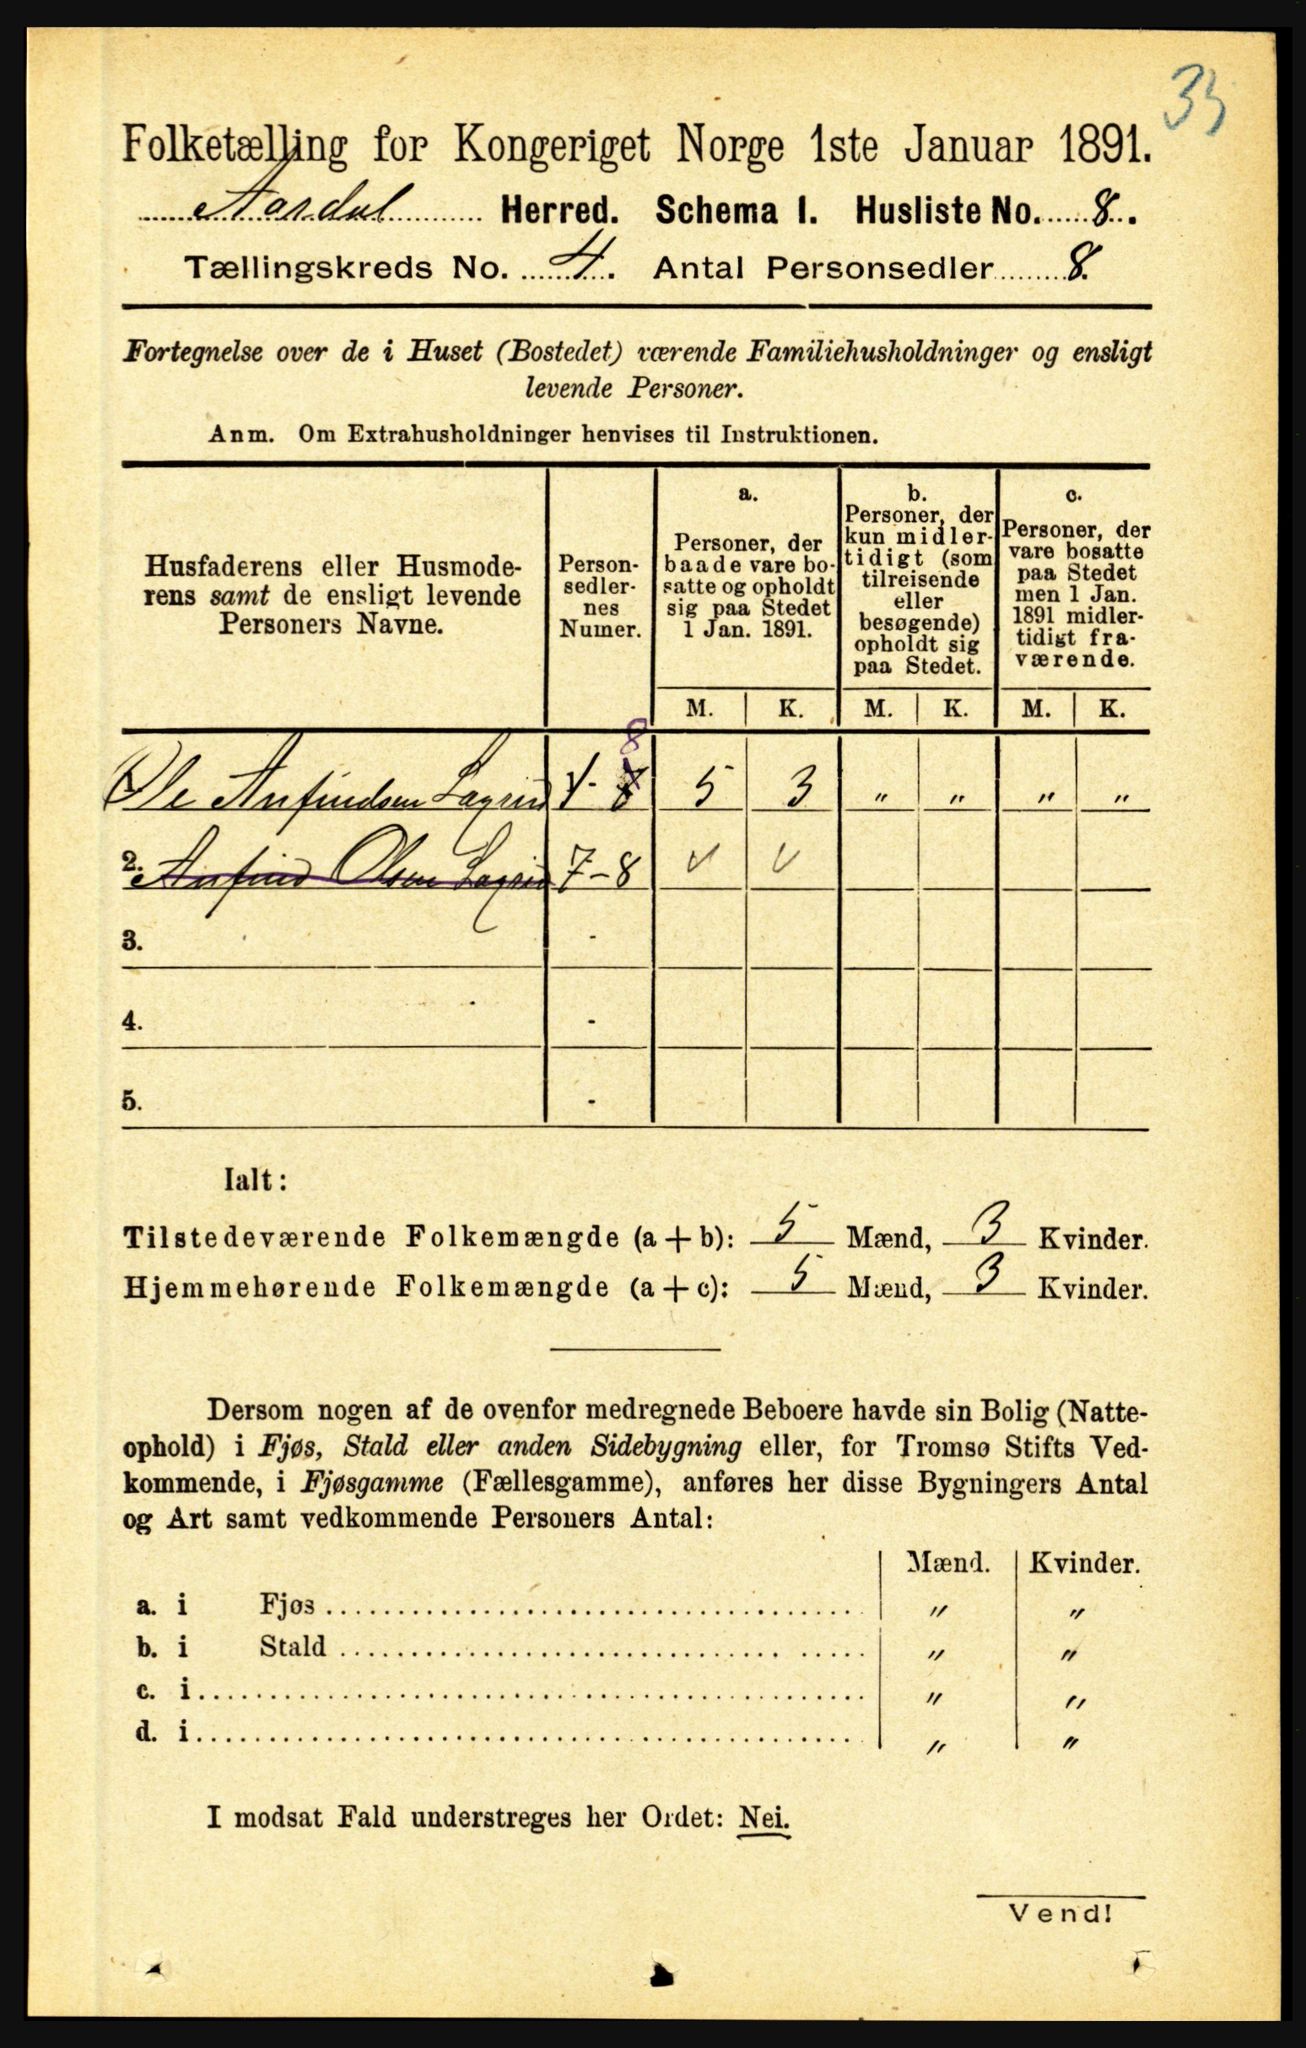 35
Folketælling for Kongeriget Norge 1ste Januar 1891.
Aardal Herred. Schema I. Husliste No. 8.
Tællingskreds No. 4. Antal Personsedler 8.
Fortegnelse over de i Huset (Bostedet) værende Familiehusholdninger og ensligt
levende Personer.
Anm. Om Extrahusholdninger henvises til Instruktionen.
Husfaderens eller Husmode-
rens samt de ensligt levende
Personers Navne.
Person-
sedler-
nes
Numer.
a.
Personer, der
baade vare bo-
satte og opholdt
sig paa Stedet
1 Jan. 1891.
b.
Personer, der
kun midler-
tidigt (som
tilreisende
eller
besøgende)
opholdt sig
paa Stedet.
c.
Personer, der
vare bosatte
paa Stedet
men 1 Jan.
1891 midler-
tidigt fra-
værende.
M. K. M. K. M. K.
8
Ole Anfindsen 1- 8 5 3 " " " "
2. Anfind Olsen 7-8 ✓ ✓
3. -
4. -
5. -
Ialt:
Tilstedeværende Folkemængde (a + b): 5 Mænd, 3 Kvinder.
Hjemmehørende Folkemængde (a + c): 5 Mænd, 3 Kvinder.
Dersom nogen af de ovenfor medregnede Beboere havde sin Bolig (Natte-
ophold) i Fjøs, Stald eller anden Sidebygning eller, for Tromsø Stifts Ved-
kommende, i Fjøsgamme (Fællesgamme), anføres her disse Bygningers Antal
og Art samt vedkommende Personers Antal:
Mænd. Kvinder.
a. i Fjøs " "
b. i Stald " "
c. i " "
d. i " "
I modsat Fald understreges her Ordet: Nei.
Vend!